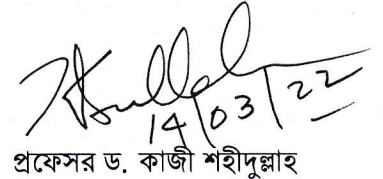 14/03/22
প্রফেসর ড. কাজী শহীদুল্লাহ